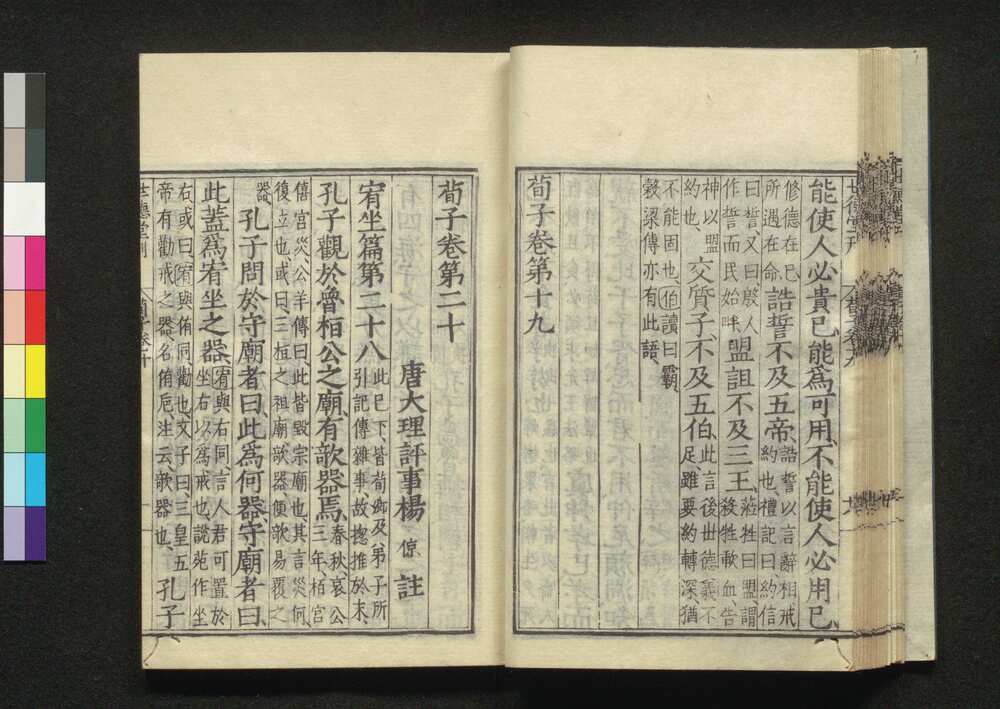 能使人必貴已能爲可用不能使人必用已
修德在已所遇在命誥誓不及五帝誥誓以言辭相戒約也禮記曰約信
曰誓又曰殷人作誓而民始畔盟詛不及三王蒞牲曰盟謂殺牲歃血告
神以盟約也交質子不及五伯此言後世德義不足雖要約轉深猶
不能固也伯讀曰霸穀梁傳亦有此語
荀子卷第十九
荀子卷第二十
唐大理評事楊倞註
宥坐篇第二十八此已下皆荀卿及弟子所引記傳雜事故摠推於末
孔子觀於魯桓公之廟有欹器焉春秋哀公三年桓宮
僖宮災公羊傳曰此皆毀宗廟也其言災何復立也或曰三桓之祖廟欹器傾欹易覆之
器孔子問於守廟者曰此爲何器守廟者曰
此蓋爲宥坐之器宥與右同言人君可置於坐右以爲戒也說苑作坐
右或曰宥與侑同勸也文子曰三皇五帝有勸戒之器名侑卮注云欹器也孔子
世德堂刊